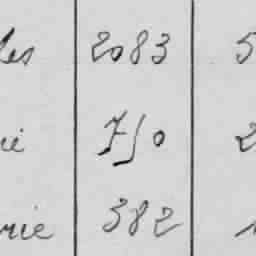 les 2083 5
ie 750 2
rie 382 1